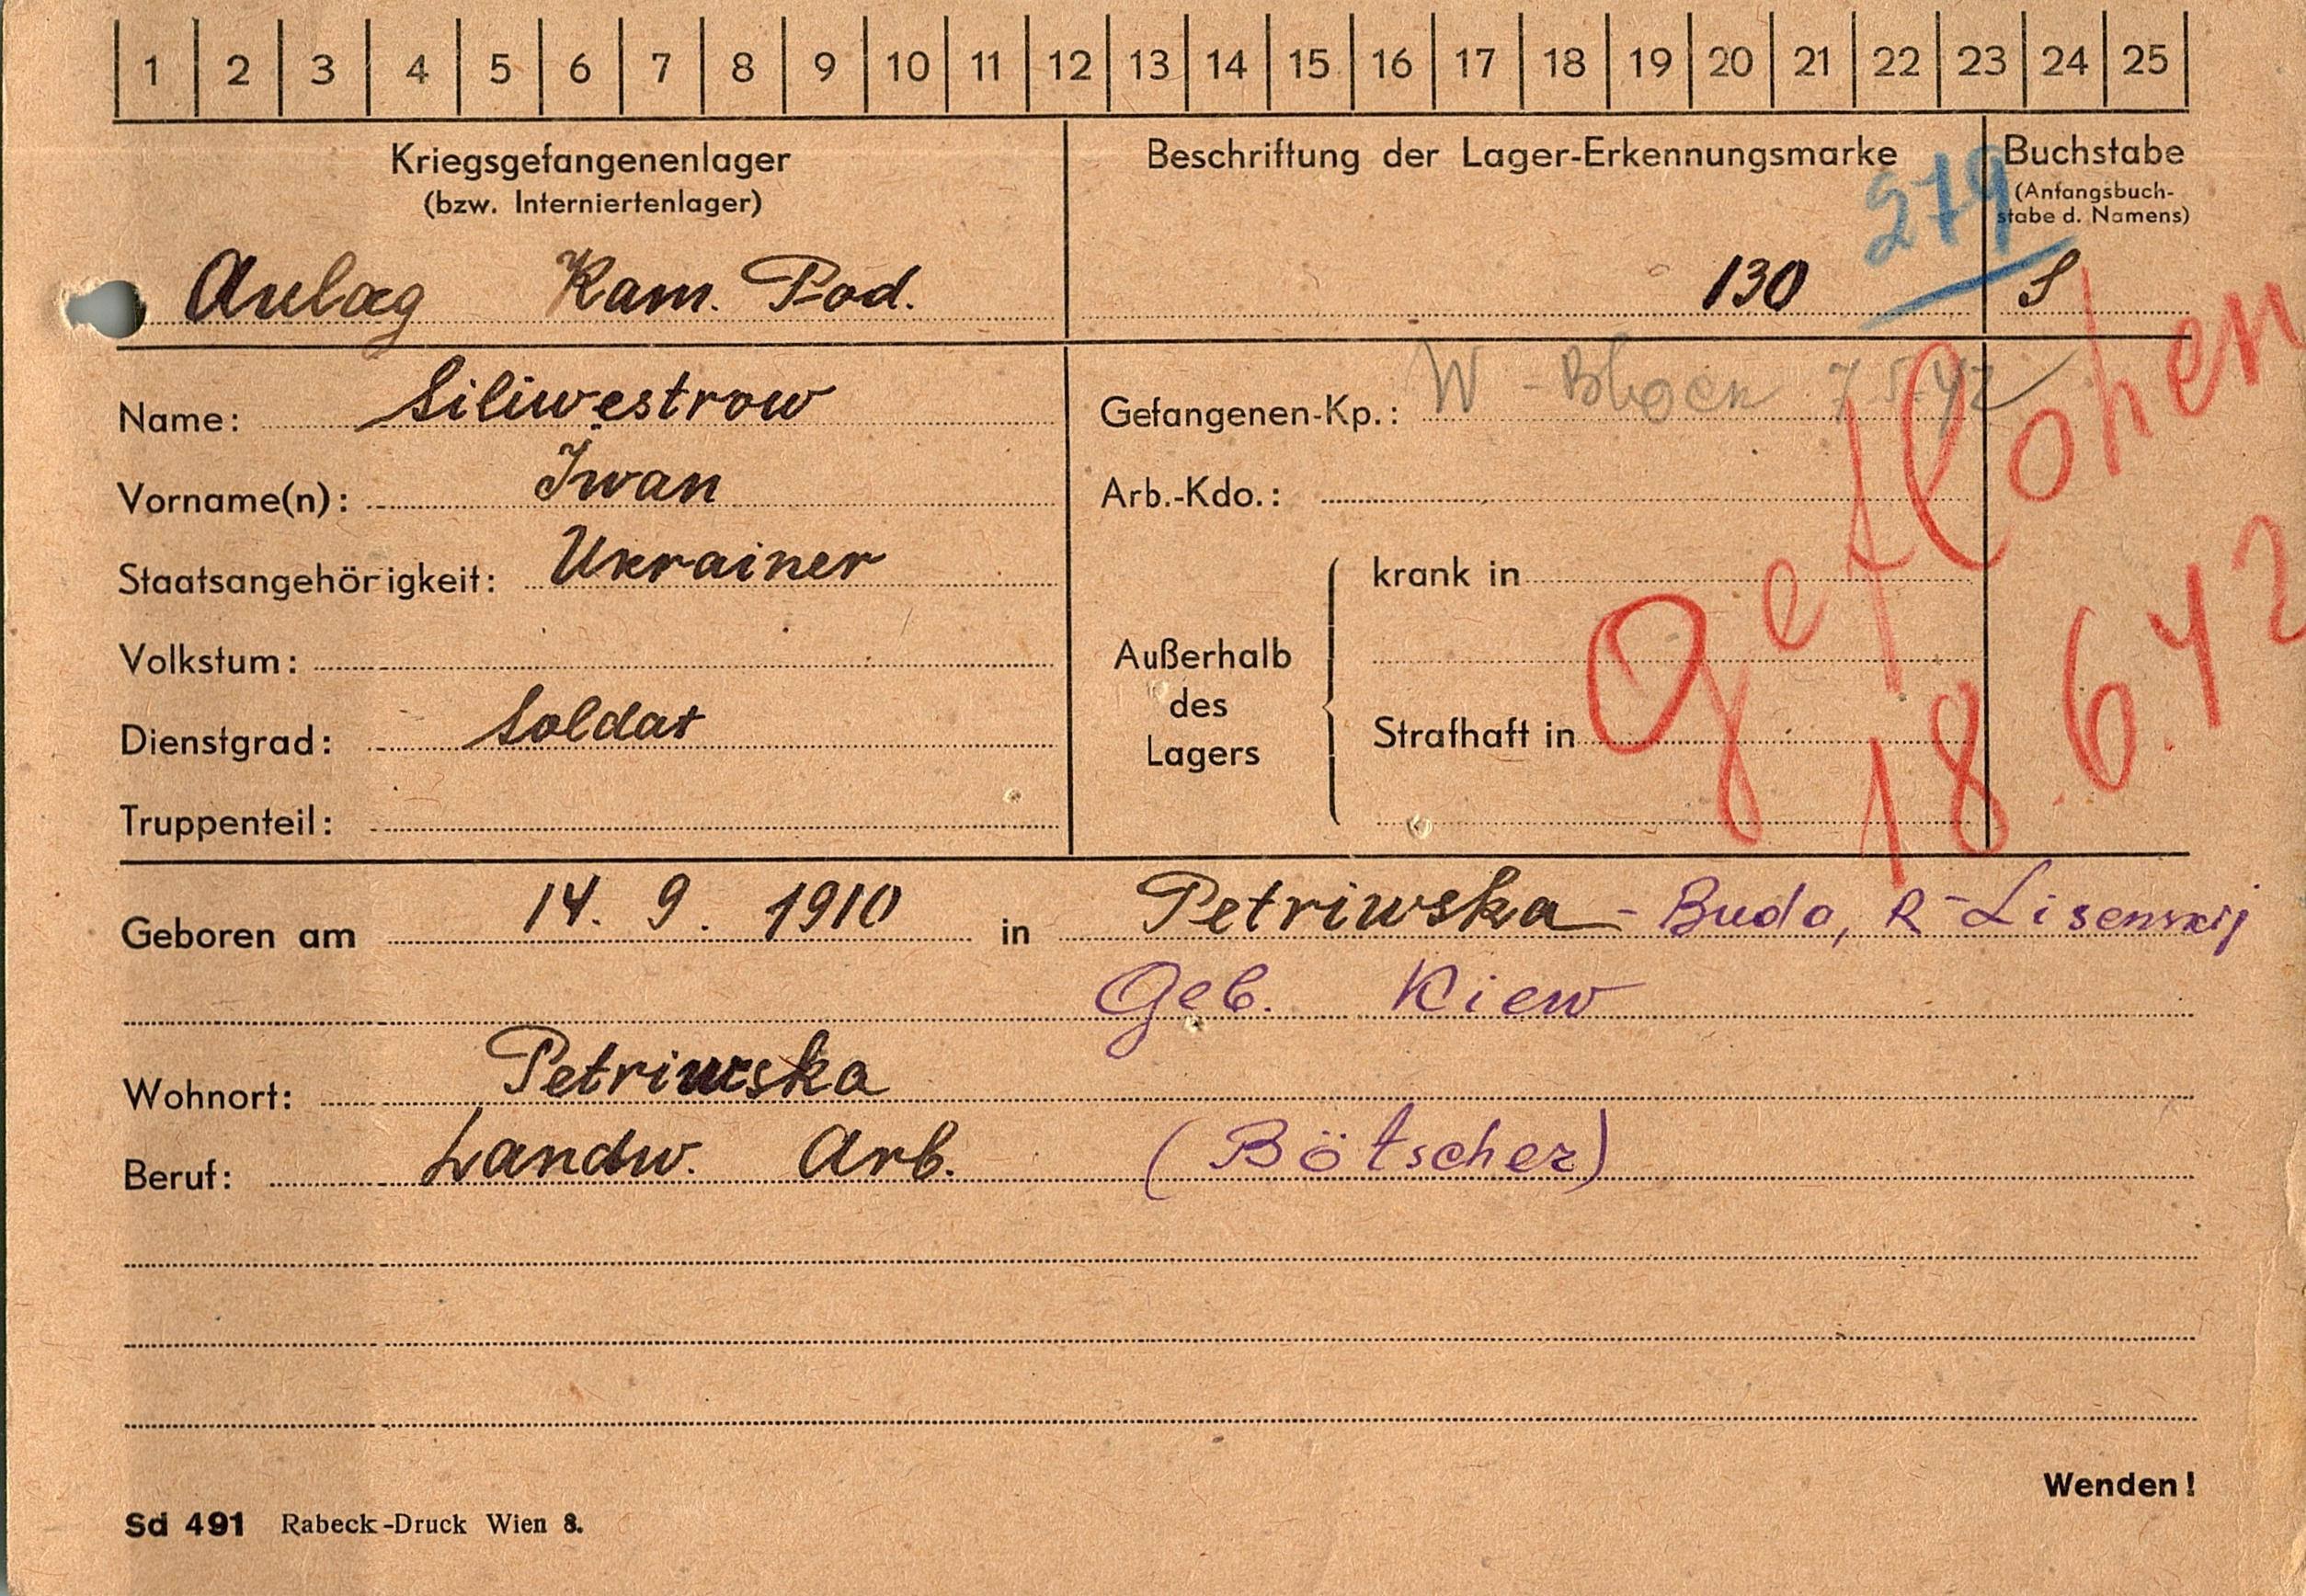 1 2 3 4 5 6 7 8 9 10 11 12 13 14 15 16 17 18 19 20 21 22 23 24 25
Kriegsgefangenenlager
(bzw. Interniertenlager)
Aulag Kam. Pod.
Beschriftung der Lager-Erkennungsmarke
279
130
Buchstabe
(Anfangsbuch-
stabe d. Namens)
S
Name: Siliwestrow
Vorname(n): Iwan
Staatsangehörigkeit: Ukrainer
Volkstum:
Dienstgrad: Soldat
Truppenteil:
Gefangenen-Kp.: W - Block 7 5. 42
Arb.-Kdo.:
Außerhalb
des
Lagers
krank in
Strafhaft in
Geflohen
18. 6. 42
Geboren am 14. 9. 1910 in Petriwska - Buda, R - Lisenskij
Geb. Kiew
Wohnort: Petriwska
Beruf: Landw. Arb. (Bötscher)
Wenden!
Sd 491 Rabeck-Druck Wien 8.